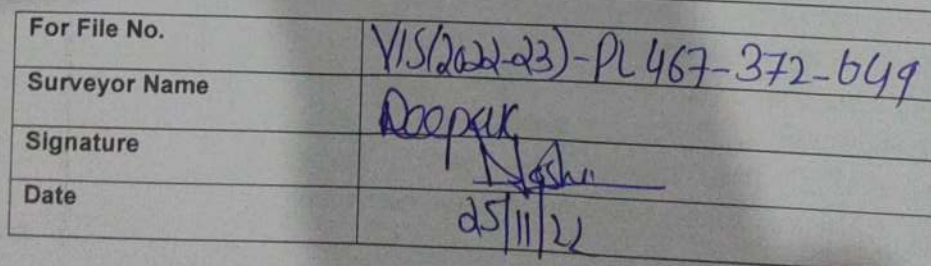 For File No. VIS(2022-23)-PL467-372-649
Surveyor Name Deepak
Signature
Date 25/11/22